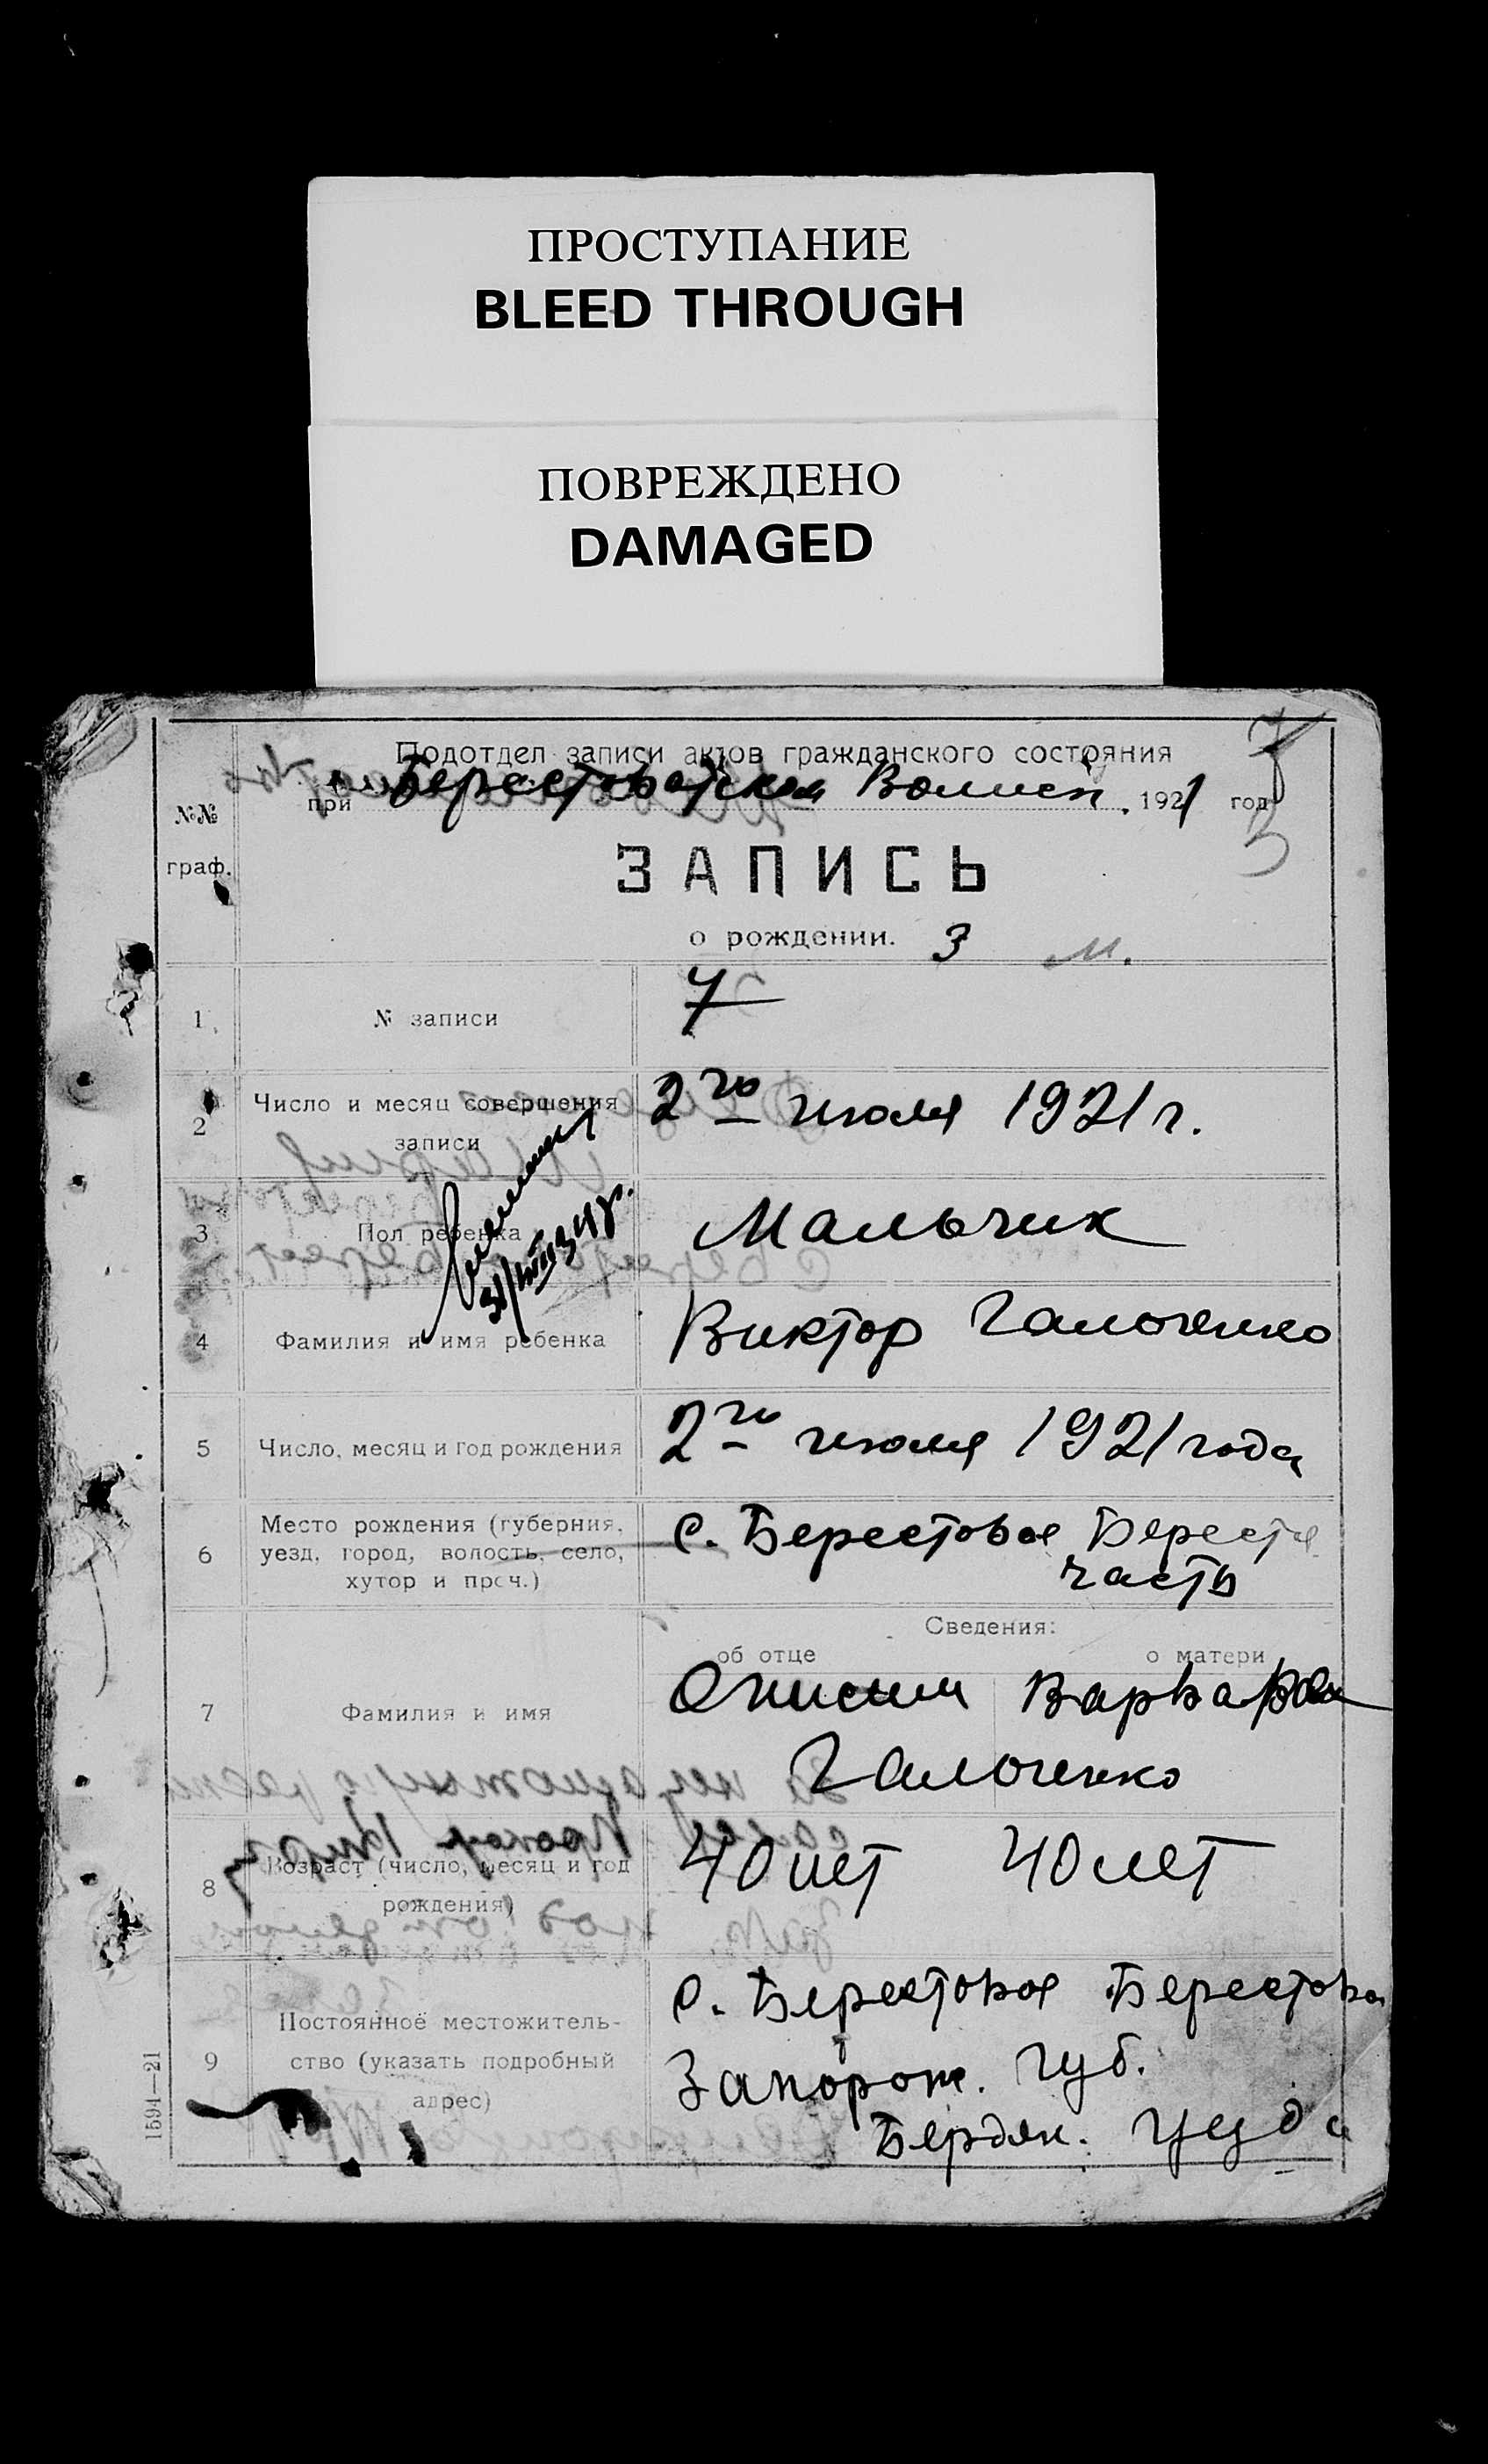 ПРОСТУПАНИЕ
BLEED THROUGH
ПОВРЕЖДЕНО
DAMAGED
7
Подотдел записи актов гражданского состояния
при Берестоватском Волисп. 1921 год
3
№№
граф.
ЗАПИСЬ
о рождении. 3 м.
1 № записи 7
2 Число и месяц совершения записи 2го июля 1921 г.
31/VIII 34 г.
3 Пол ребенка Мальчик
4 Фамилия и имя ребенка Виктор Галюченко
5 Число, месяц и год рождения 2го июля 1921 года
6 Место рождения (губерния,
уезд, город, волость, село,
хутор и проч.)
с. Берестовое Берест
часть
Сведения:
об отце о матери
7 Фамилия и имя Онисим Варвара
Галюченко
8 Возраст (число, месяц и год
рождения)
40 лет 40 лет
9 Постоянное местожитель-
ство (указать подробный
адрес)
с. Берестовое Берестов
Запорож. губ.
Бердян. уезда
1594—21